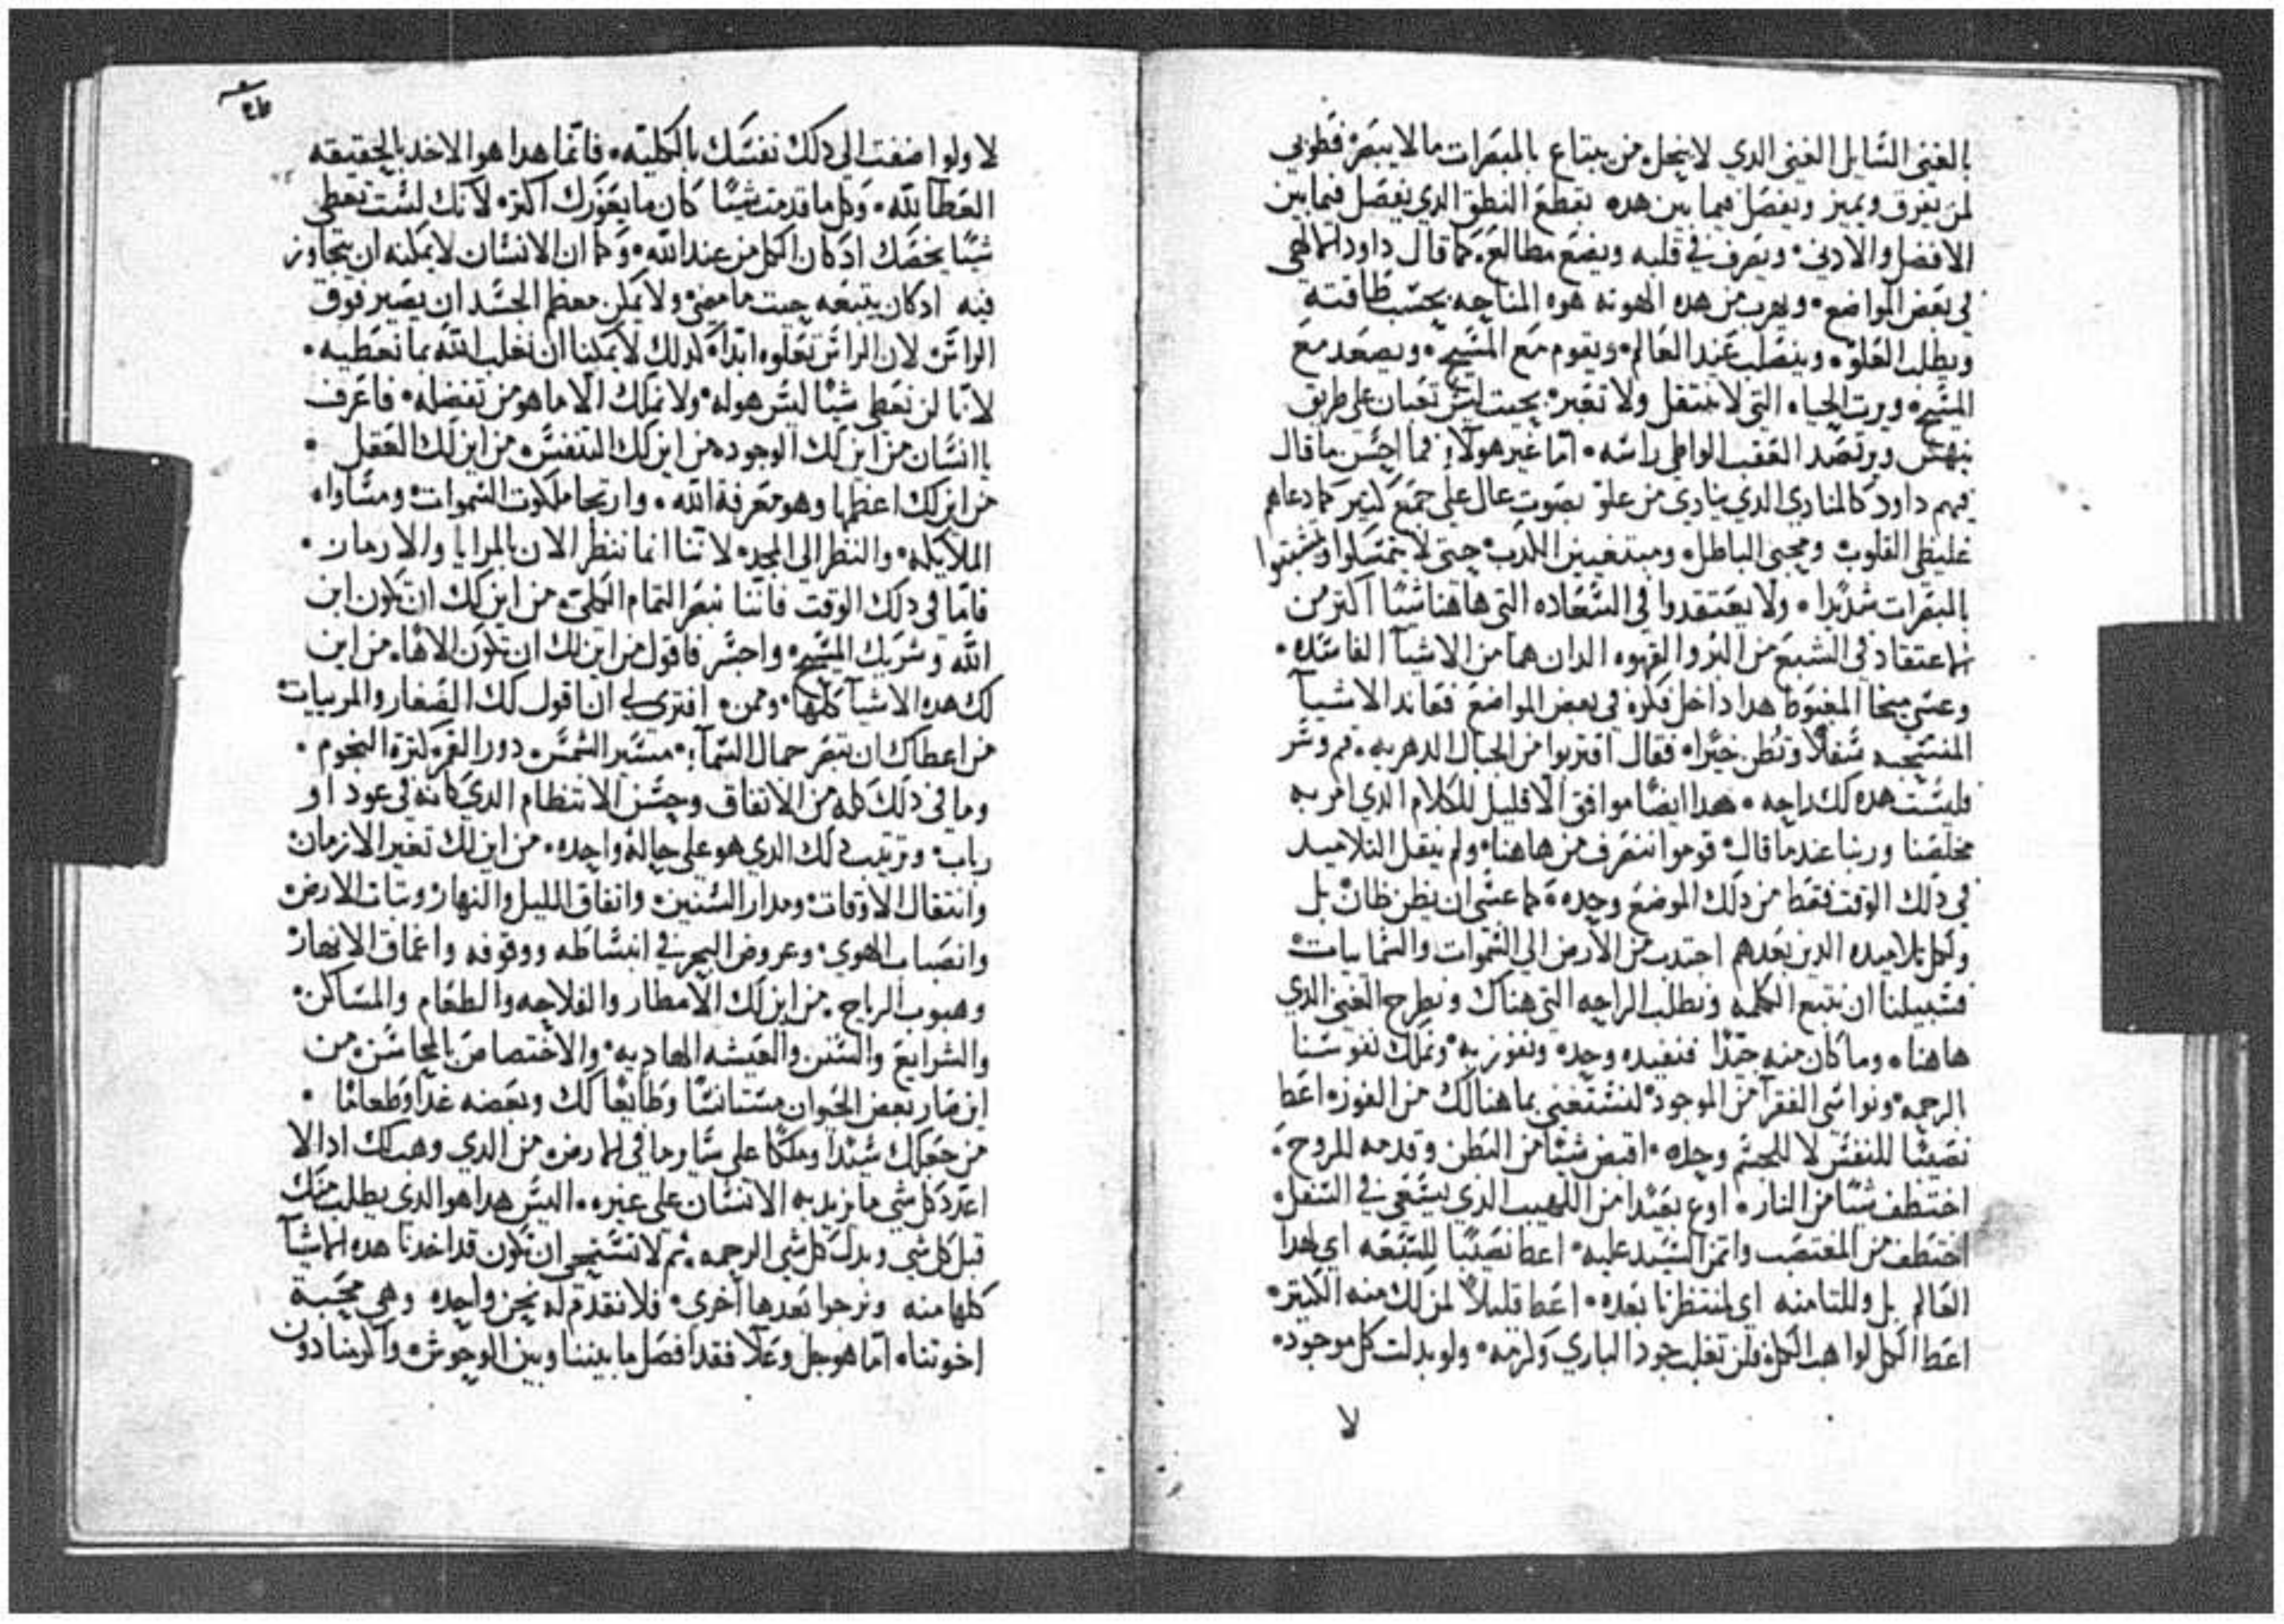 بالغنى السايل الغنى الدي لا ينحل من يبتاع بالمبصرات ما لا يبصر فطوبي
لمن يفرق ويميز ويفصل فيما بين هده بقطع النطق الدي يفصل فيما بين
الافضل والادني ويعرف في قلبه ويضع مطالع كما قال داود الالهي
في بعض المواضع ويهرب من هده الهوته هوه المناحه بحسب طاقته
ويطلب العلو وينصلب عند العالم ويقوم مع المسيح ويصعد مع
المسيح ويرت الحياه التي لا تنتقل ولا تغير بحيت ليس تعبان علي طريق
ينهش ويرتصد العقب الواطي راسه اما غير هولاء فما احسن ما قال
فيهم داود كالمنادي الدي ينادي من علو بصوت عال علي جمع كتير كما دعاهم
غليظي القلوب ومحبي الباطل ومبتغيين الكدب حتي لا يتمسكوا
بالمبصرات شديدا ولا يعتقدوا في السعاده التي هاهنا شيا اكتر من
الاعتقاد في الشبع من البر والقهوه الدان هما من الاشيا الفاسده
وعسي ميخا المغبوط هدا داخل فكره في بعض المواضع فعاند الاشيا
المنسحبه سفلا وتظن خيرا فقال اقتربوا من الجبال الدهريه قم وسر
فليست هده لك راحه هدا ايضا موافق الا قليل للكلام الدي امر به
مخلصنا وربنا عندما قال قوموا ننصرف من هاهنا ولم ينقل التلاميد
في دلك الوقت فقط من دلك الموضع وحده كما عسي ان يظن ظان بل
ولكل تلاميده الدين بعدهم اجتدب من الارض الي السموات والسماييات
فسبيلنا ان نتبع الكلمه ونطلب الراحه التي هناك ونطرح الغني الدي
هاهنا وما كان منه جيدا فنفيده وحده ونفوز به ونملك نفوسنا
بالرحمه ونواسي الفقرا من الموجود لنستغني بما هنالك من الفوز اعط
نصيبا للنفس لا للجسم وحده اقبض شيا من البطن وقدمه للروح
اختطف شيا من النار اودع بعيدا من اللهيب الدي يسعي في السفل
اختطف من المغتصب واتمن السيد عليه اعط نصيبا للسبعه اي لهدا
العالم بل وللتامنه اي لمنتظرنا بعده اعط قليلا لمن لك منه الكتير
اعط الكل لواهب الكل فلن تغلب جود الباري وكرمه ولو بدلت كل موجود
لا
لا ولو اضفت الي دلك نفسك بالكليه فانما هدا هو الاخد بالحقيقه
العطا لله وكل ما قدمت شيا كان ما يعوزك اكتر لانك لست تعطي
شيا يخصك اد كان الكل من عند الله وكما ان الانسان لا يمكنه ان يتجاوز
فيه اد كان يتبعه حيت ما مضي ولا يمكن معظم الجسد ان يصير فوق
الراس لان الراس تعلوه ابدا كدلك لا يمكننا ان نغلب الله بما نعطيه
لانا لن نعطي شيا ليس هو له ولا نملك الا ما هو من تفضله فاعرف
يا انسان من اين لك الوجود من اين لك التنفس من اين لك العقل
من اين لك اعظمها وهو معرفة الله وارتجا ملكوت السموات ومساواه
الملايكه والنظر الي المجد لاننا انما ننظر الان بالمرايا والارماز
فاما في دلك الوقت فاننا نبصر التمام الكلي من اين لك ان تكون ابن
الله وشريك المسيح واجسر فاقول من اين لك ان تكون الاها من اين
لك هده الاشيا كلها وممن افتري لي ان اقول لك الصغار والمرييات
من اعطاك ان تبصر جمال السماء مسير الشمس دور القمر كترة النجوم
وما في دلك كله من الاتفاق وحسن الانتظام الدي كانه في عود او
رباب وترتيب دلك الدي هو علي حالة واحده من اين لك تغير الازمان
وانتقال الاوقات ومدار السنين واتفاق الليل والنهار ونبات الارض
وانصباب الهوي وعروض البحر في انبساطه ووقوفه واعماق الانهار
وهبوب الرياح من اين لك الامطار والفلاحه والطعام والمساكن
والشرايع والسنن والعيشه الهاديه والاختصاص بالمحاسن من
اين صار بعض الحيوان مستانسا وطايعا لك وبعضه غدا وطعاما
من جعلك سيدا وملكا علي ساير ما في الارض من الدي وهب لك اد لا
اعدد كل شي ما يزيد به الانسان علي غيره اليس هدا هو الدي يطلب منك
قبل كل شي وبدل كل شي الرحمه ثم لا نستحي ان نكون قد اخدنا هده الاشيا
كلها منه ونرجوا بعدها اخري فلا نقدم له نحن واحده وهي محبة
اخوتنا اما هو جل وعلا فقد افصل ما بيننا وبين الوحوش واكرمنا دون